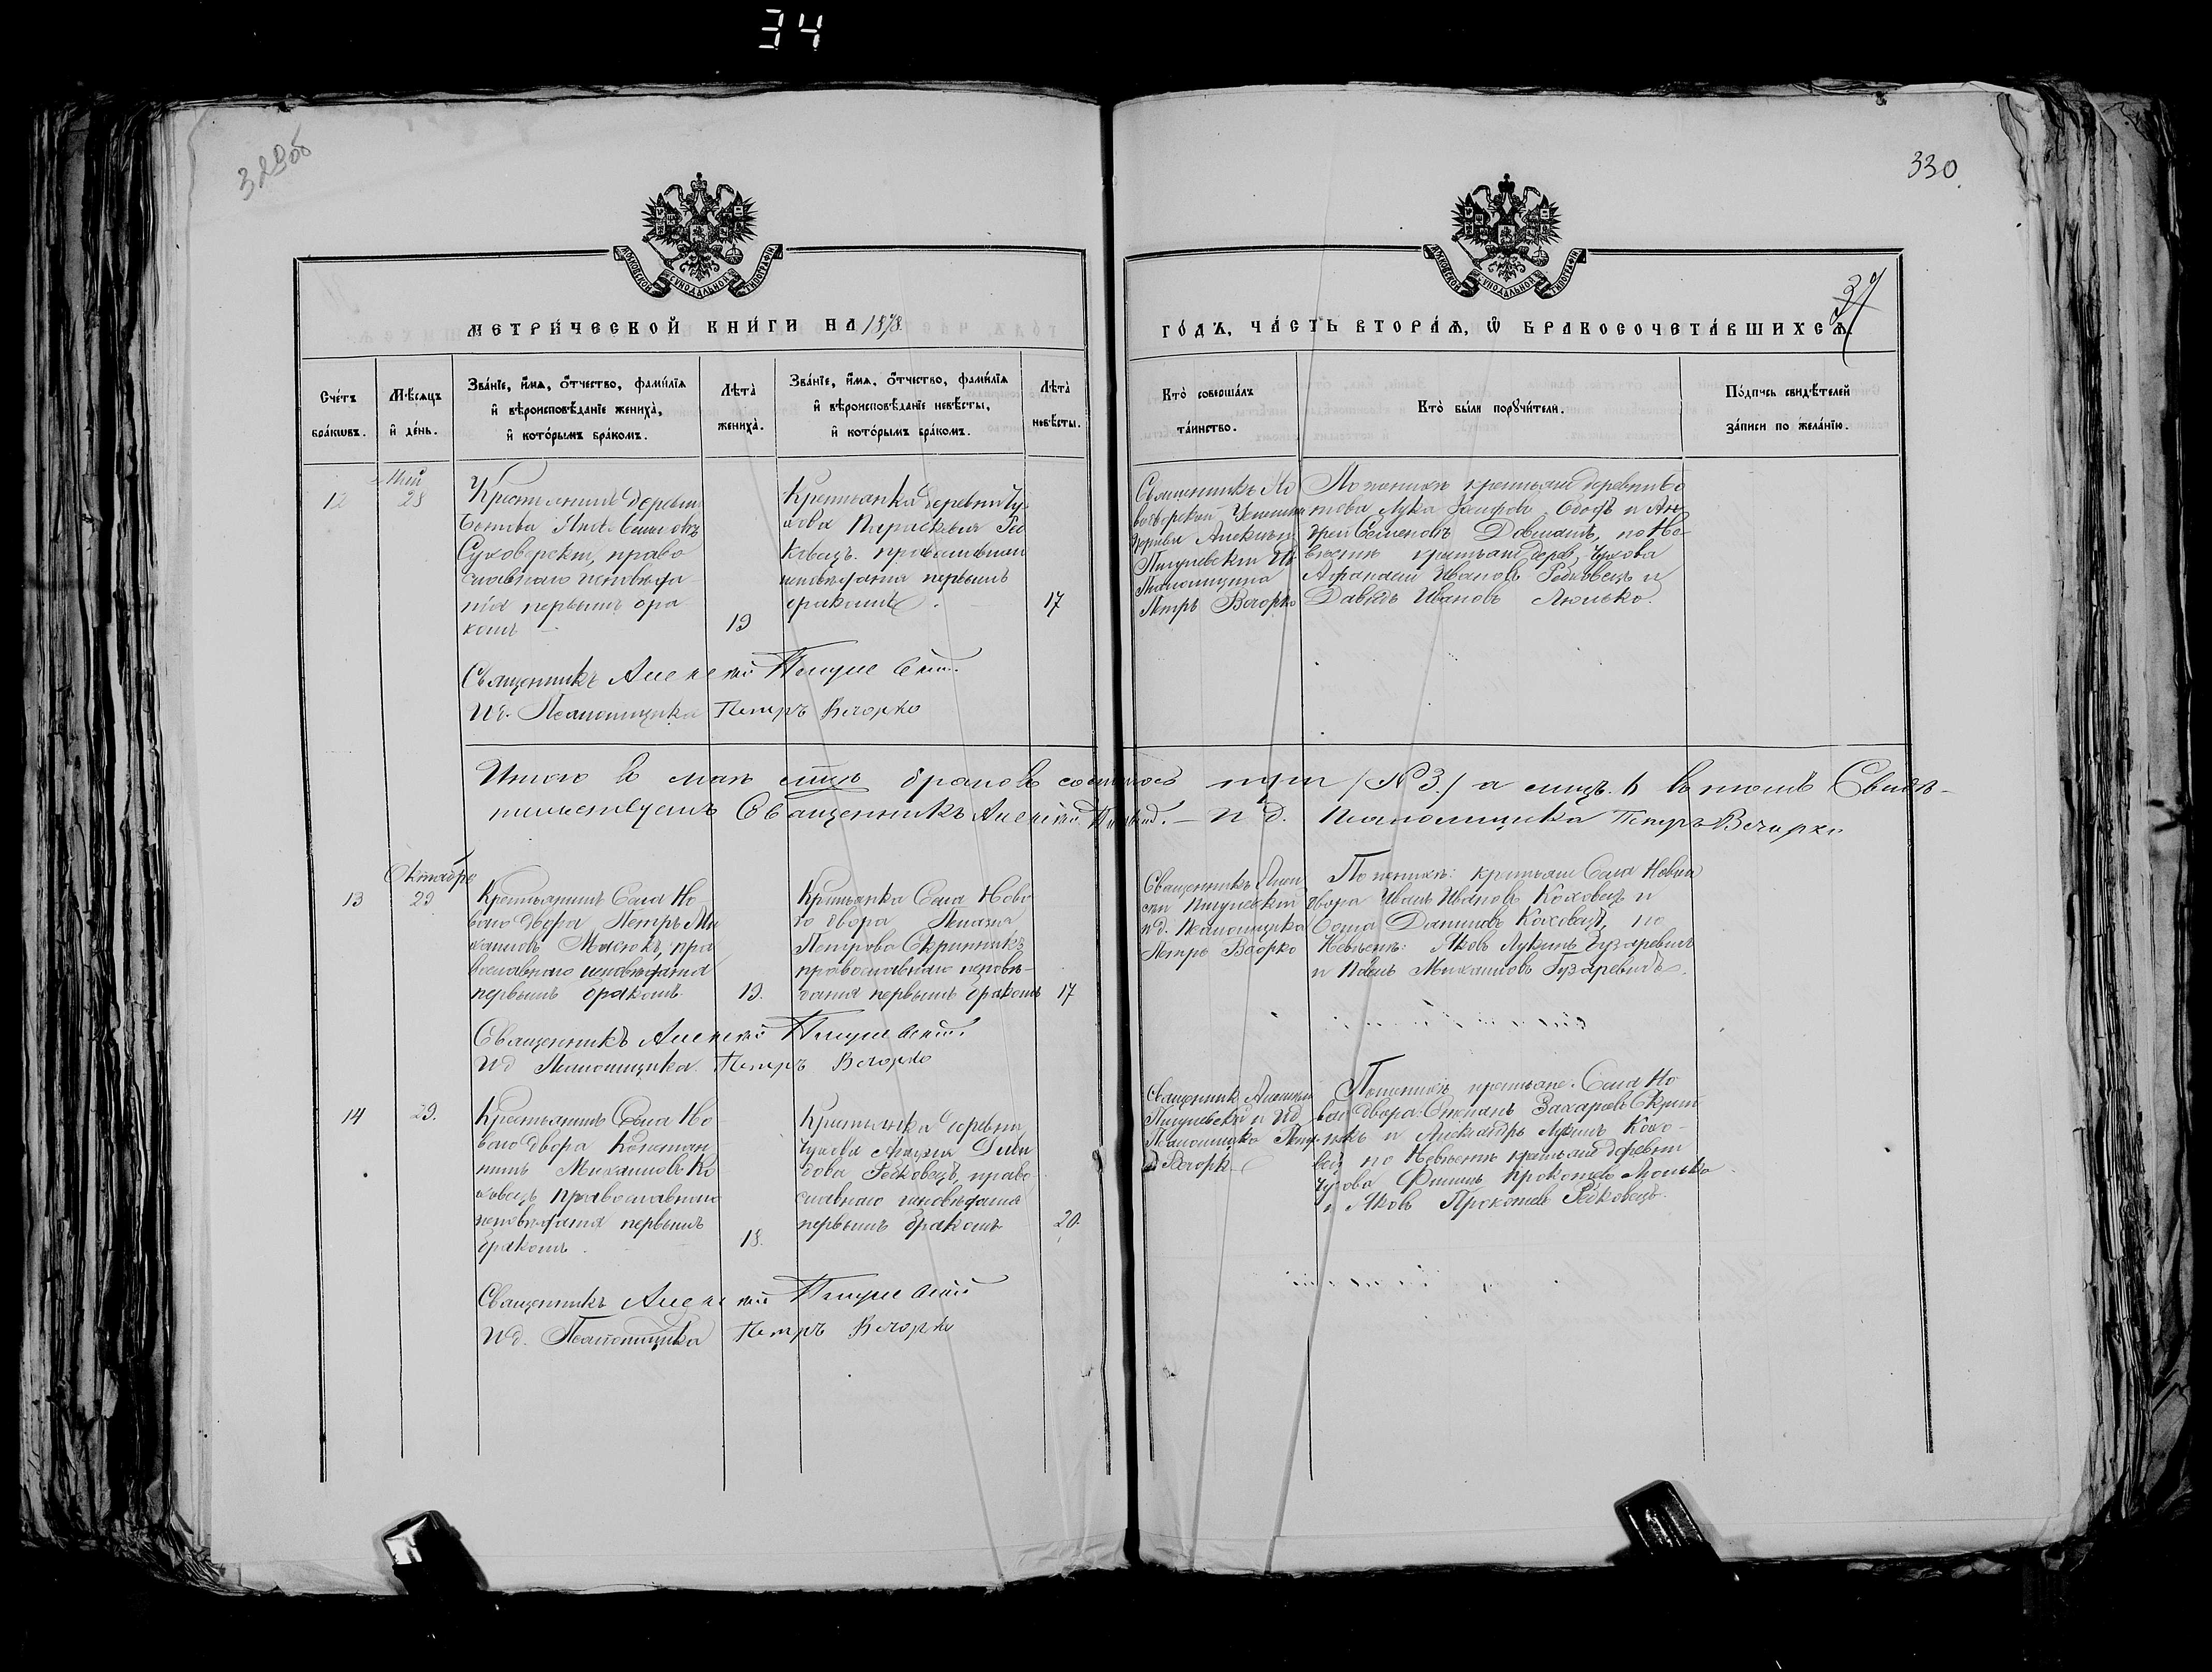 34
329об
330
37
МОСКОВСКОЙ СѴНОДАЛЬНОЙ ТИПОГРАФІИ
МЕТРИ́ЧЕСКОЙ КНИ́ГИ НА 1878
МОСКОВСКОЙ СѴНОДАЛЬНОЙ ТИПОГРАФІИ
ГО́ДЪ, ЧА́СТЬ ВТОРА́Ѧ, Ѡ҆ БРАКОСОЧЕТА́ВШИХСѦ.
Сче́тъ бра́кѡвъ.
Мѣ́сѧцъ и҆ де́нь.
Зва́нїе, и҆́мѧ, о҆́тчество, фами́лїѧ
и҆ вѣроисповѣ́данїе жениха̀,
и҆ кото́рымъ бра́комъ.
Лѣ́та̀ жениха̀.
Зва́нїе, и҆́мѧ, о҆́тчество, фами́лїѧ
и҆ вѣроисповѣ́данїе невѣ́сты,
и҆ кото́рымъ бра́комъ.
Лѣ́та̀ невѣ́сты.
Кто̀ соверша́лъ та́инство.
Кто̀ бы́ли порꙋчи́тели.
По́дпись свидѣ́телей за́писи по жела́нїю.
12
Май
28
Крестьянинъ деревни
Суховерскій, право
славнаго исповѣда
нія первымъ бра
комъ
19
Крестьянка деревни Чу
хова Параскевія Ре
ковецъ. православнаго
исповѣданія первымъ
бракомъ.
17
Священникъ Но
водворской
церкви Алексѣй
Пигулевскій Ид
Псаломщика
Петръ Вечорко
По женихѣ крестьяне деревни Бо
това Лука
дрей Семеновъ Довматъ, по Не
вѣстѣ крестьяне дерев. Чухова
Афанасій Ивановъ Редковецъ и
Давидъ Ивановъ Люлько.
Священникъ Алексѣй Пигулевскій.
Ид. Псаломщика Петръ Вечорко
Итого в маѣ мцѣ браковъ состоялось три /№ 3./ в томъ Свидѣ-
тельствуемъ Священникъ Алексѣй – И д. Псаломщика Петръ Вечорко
13
Октябрь
29.
Крестьянинъ Села Но
ваго двора Петръ Ми
хаиловъ Мосюкъ, пра
вославнаго исповѣданія
первымъ бракомъ.
19.
Крестьянка Села Ново
го двора
Петрова Скрипникъ
православнаго исповѣ-
данія первымъ бракомъ
17
Священникъ Алек
сѣй Пигулевскій
и д. Псаломщика
Петръ Вечорко
По женихѣ: крестьяне Села Новаго
двора Иванъ Ивановъ Коховецъ и
Даниловъ Коховецъ, по
Невѣстѣ: Яковъ Лукинъ Бузаревичъ
и Павелъ Михаиловъ Бузаревичъ.
Священникъ Алексѣй Пигулевскій.
Ид Псаломщика Петръ Вечорко
14
29.
Крестьянинъ Села Но
ваго двора Констан
тинъ Михаиловъ Ко
ховецъ православнаго
исповѣданія первымъ
бракомъ.
18.
Крестьянка деревни
Чухова Дави
дова Редковецъ, право
славнаго исповѣданія
первымъ бракомъ
20.
Священник Алексѣй
Пигулевскій и Ид
Псаломщика Петр
Вечорк
По женихѣ крестьяне. Села Но
ваго двора: Степанъ Захаровъ Скрип
никъ и Александръ Лукинъ Кохо-
вец по Невѣстѣ крестьяне деревни
Чухова Филипъ Прокопіевъ Люлько
и Яковъ Прокопіевъ Редковецъ.
Священникъ Алексѣй Пигулевскій
Ид. Псаломщика Петръ Вечорко